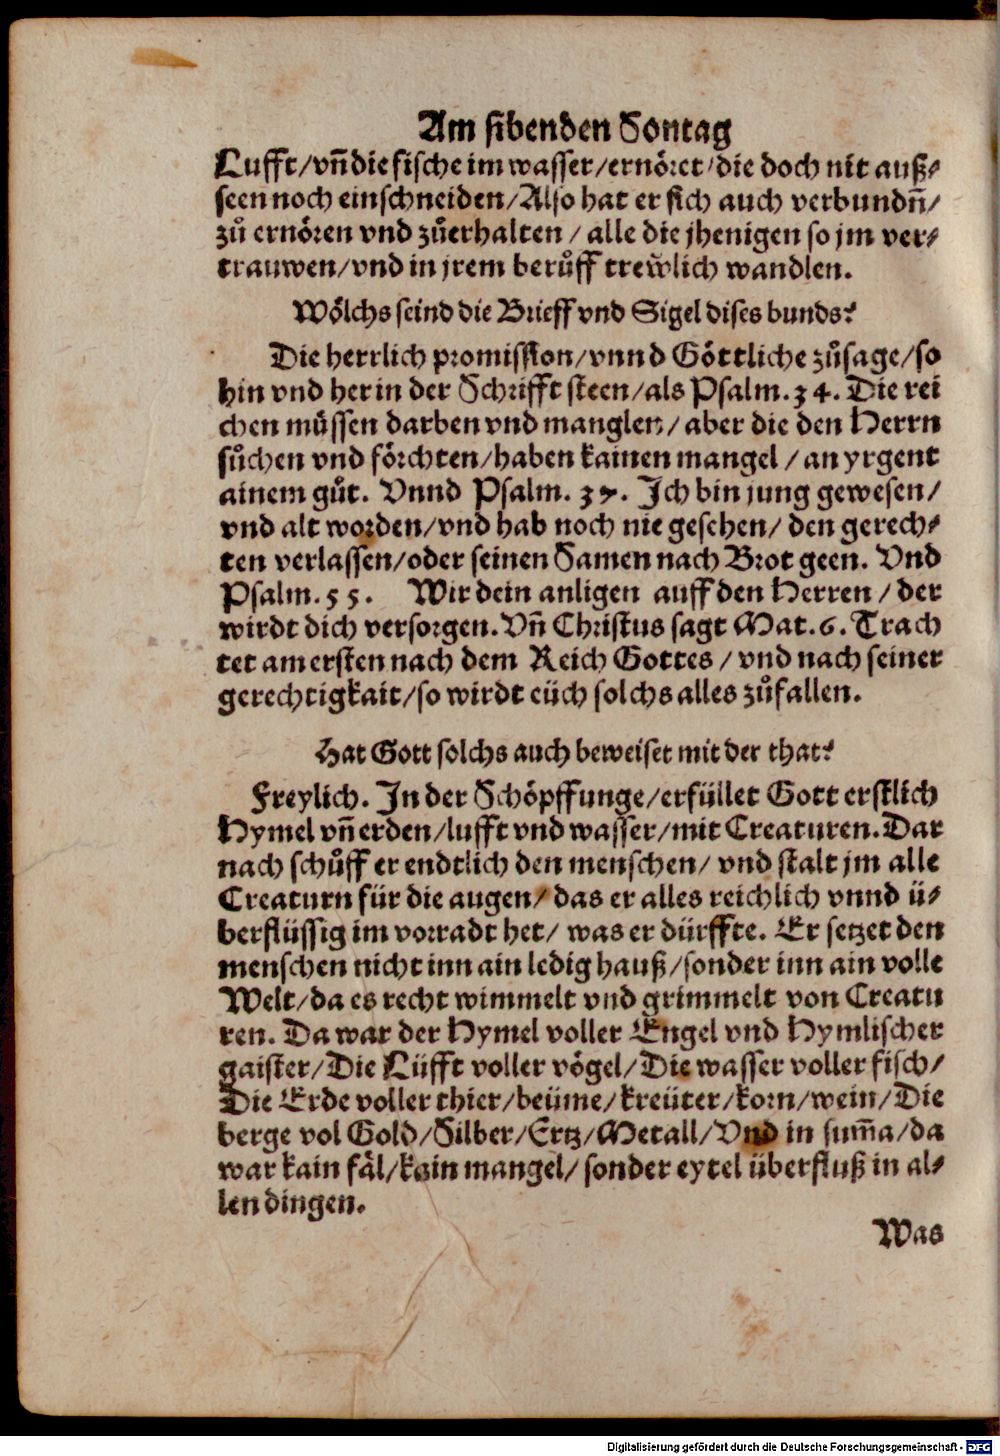 Am sibenden Sontag
Lufft/vn̄ die fische im wasser/ernöret/die doch nit auß⸗
seen noch einschneiden/Also hat er sich auch verbundn̄/
zů ernören vnd zůerhalten / alle die jhenigen so jm ver⸗
trauwen/vnd in jrem berůff trewlich wandlen.
Wölchs seind die Brieff vnd Sigel dises bunds?
Die herrlich promission/vnnd Göttliche zůsage/so
hin vnd her in der Schrifft steen/als Psalm.34. Die rei
chen müssen darben vnd manglen/ aber die den Herrn
sůchen vnd förchten/haben kainen mangel /an yrgent
ainem gůt. Vnnd Psalm.37. Ich bin jung gewesen/
vnd alt worden/vnd hab noch nie gesehen/ den gerech⸗
ten verlassen/oder seinen Samen nach Brot geen. Vnd
Psalm.55. Wirdein anligen auff den Herren / der
wirdt dich versorgen. Vn̄ Christus sagt Mat.6. Trach
tet am ersten nach dem Reich Gottes /vnd nach seiner
gerechtigkait/so wirdt eüch solchs alles zůfallen.
Hat Gott solchs auch beweiset mit der that?
Freylich. In der Schöpffunge/erfüllet Gott erstlich
Hymel vn̄ erden/lufft vnd wasser/mit Creaturen. Dar
nach schůff er endtlich den menschen/ vnd stalt jm alle
Creaturn für die augen/ das er alles reichlich vnnd ü⸗
berflüssig im vorradt het/ was er dürffte. Er setzet den
menschen nicht inn ain ledig hauß/sonder inn ain volle
Welt/da es recht wimmelt vnd grimmelt von Creatu
ren. Da war der Hymel voller Engel vnd Hymlischer
gaister/Die Lüfft voller vögel/Die wasser voller fisch/
Die Erde voller thier/beüme/kreüter/korn/wein/Die
berge vol Gold/Silber/Ertz/Metall/Vnd in sum̄a/da
war kain fäl/kain mangel/ sonder eytel überfluß in al⸗
len dingen.
Was
Digitalisierung gefördert durch die Deutsche Forschungsgemeinschaft - DFG